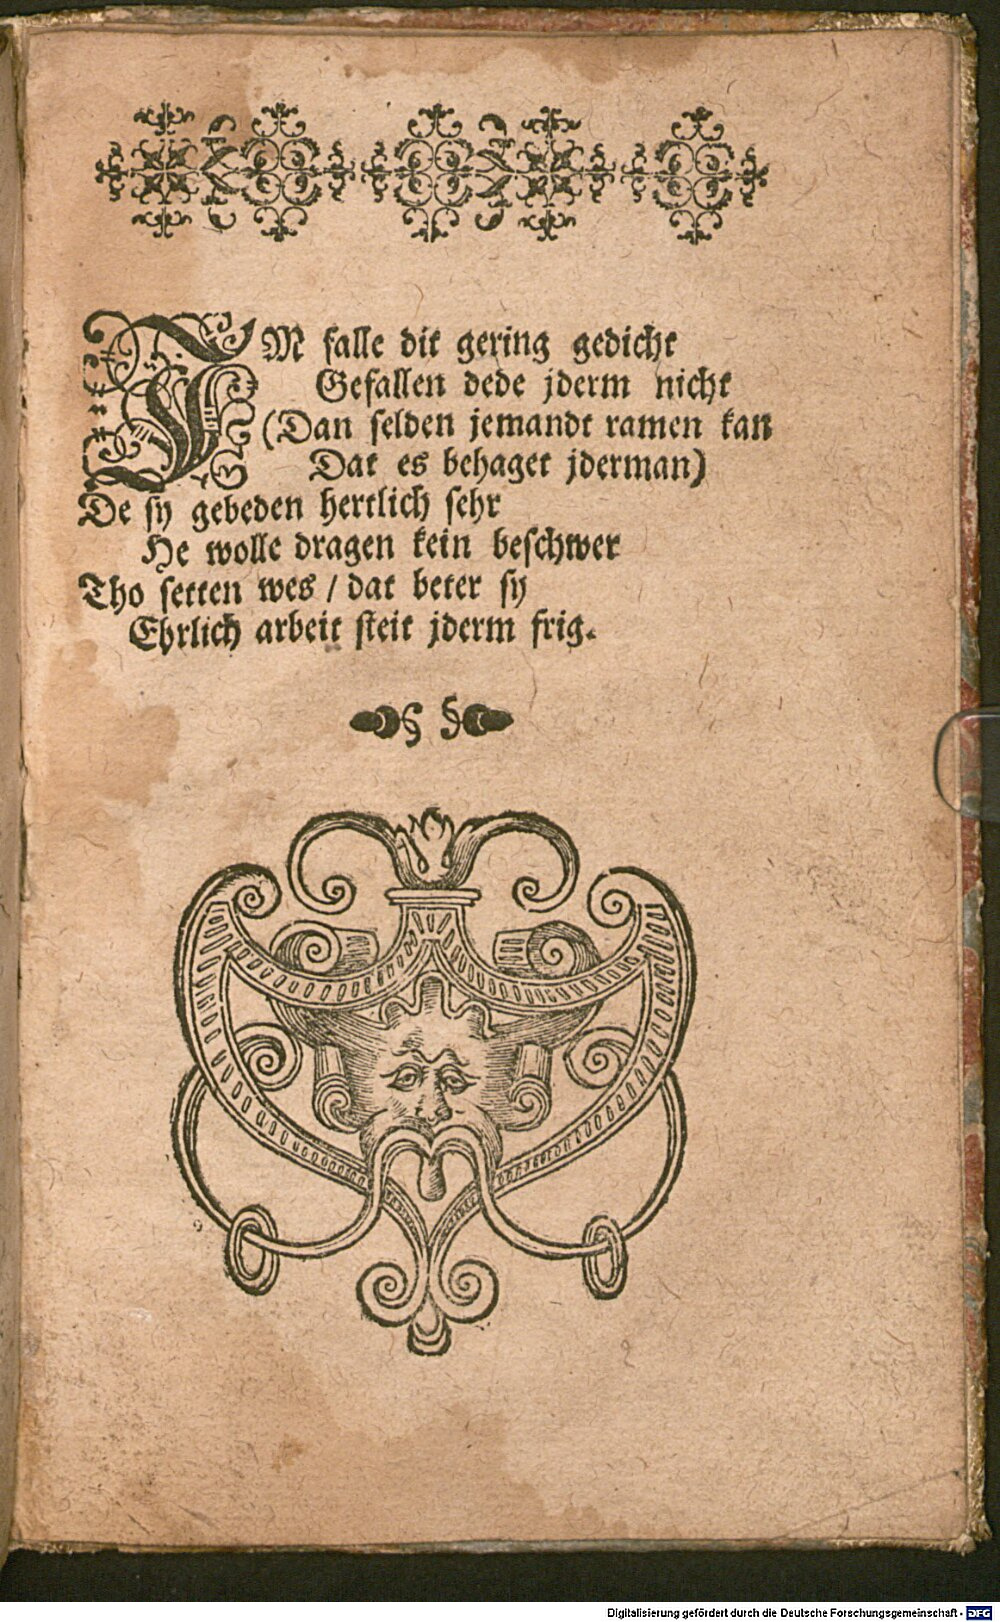 IM falle dit gering gedicht
Gefallen dede jderm nicht
(Dan selden jemandt ramen kan
Dat es behaget jderman)
De sy gebeden hertlich sehr
He wolle dragen kein beschwer
Tho setten wes / dat beter sy
Ehrlich arbeit steit jderm frig.
Digitalisierung gefördert durch die Deutsche Forschungsgemeinschaft - DFG